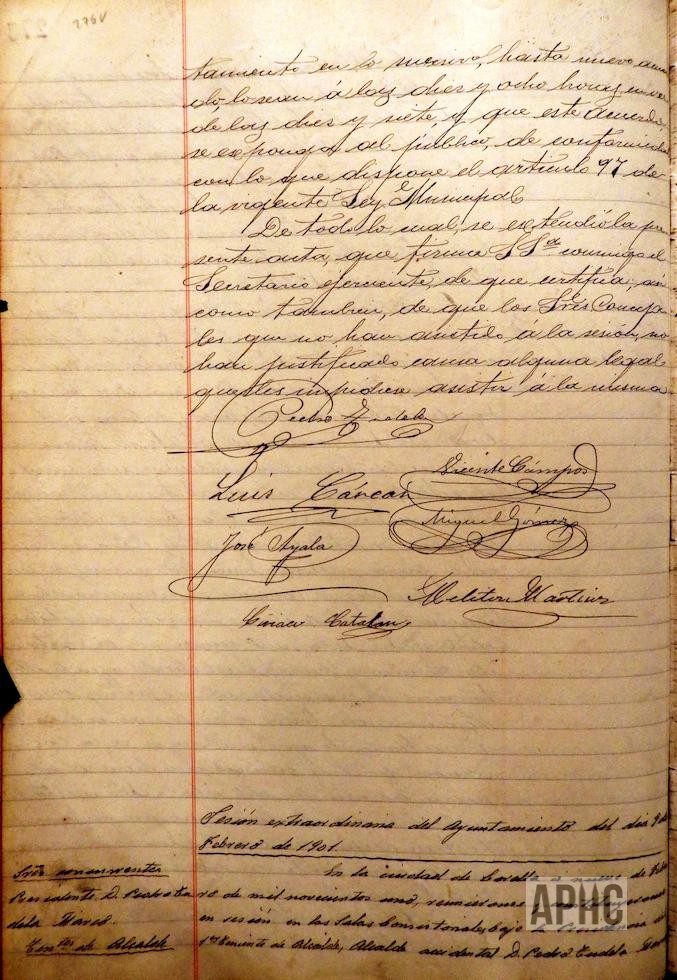 276v
tamiento en lo sucesivo, hasta nuevo acuer
do, lo sean á las dies y ocho horas en vez
de las dies y siete y que este acuerdo,
se exponga al público, de conformidad
con lo que dispone el artículo 97 de
la vigente Ley Municipal
De todo lo cual, se extendió la pre
sente acta, que firma S Sª conmigo el
Secretario ejerciente de que certifica, así
como tambien, de que los Srés Conceja
les que no han asistido á la sesión, no
han justificado causa alguna legal
que les impidiera asistir á la misma
Pedro Tudela
Vicente Campos
Luis Cárcar
Miguel Gómez
José Ayala
Meliton Martinez
Ciriaco Catalan
Sesión extraordinaria del Ayuntamiento del dia 9 de
Febrero de 1901.
Srés concurrentes
Presidente D. Pedro Tu
dela Marco.
Ten.tes de Alcalde
En la ciudad de Corella a nueve de Febre
ro de mil novecientos uno, reunidos
en sesión en las Salas Consistoriales, bajo la Presidencia del
1er Teniente de Alcalde, Alcalde accidental D. Pedro Tudela Marco
APHC